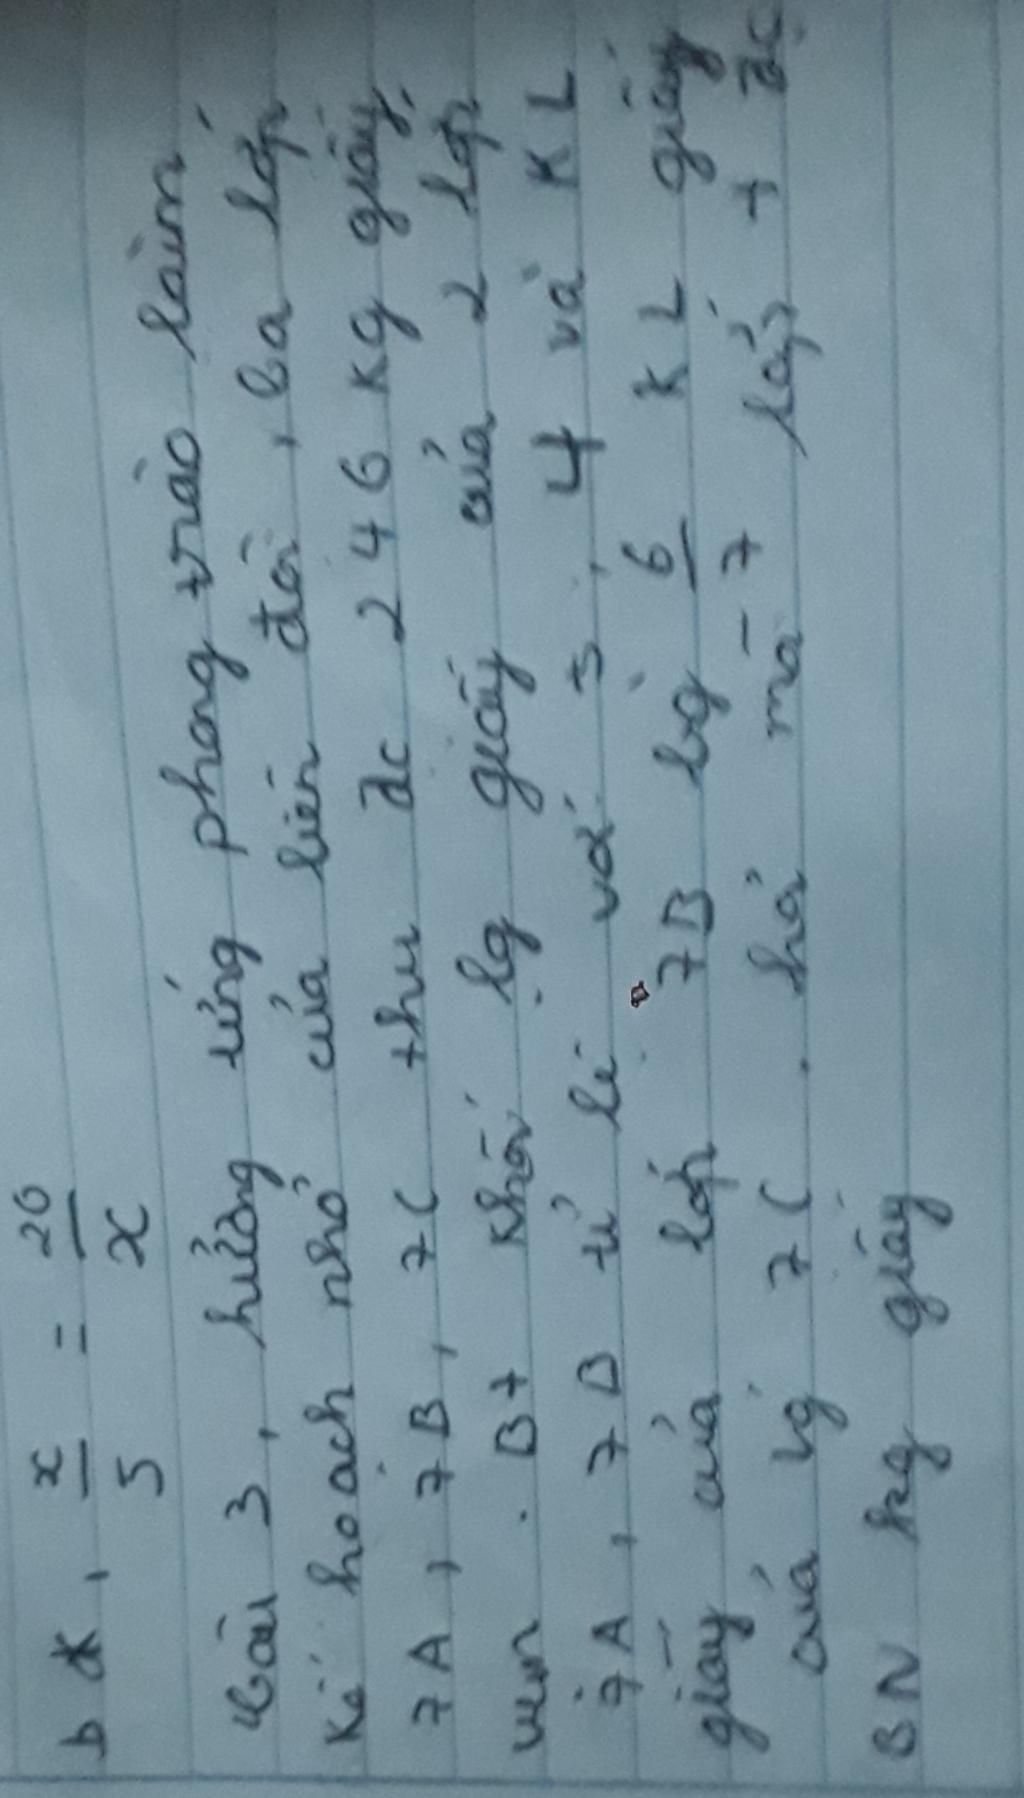 b x, x/5 = 20/x
Bài 3, hưởng ứng phong trào làm
kế hoạch nhỏ của liên đội, ba lớp
7A, 7B, 7C thu đc 246 kg giấy
vụn. Bt khối lg giấy của 2 lớp
7A, 7B tỉ lệ với 5, 4 và KL
giấy của lớp 7B bg 6/7 KL giấy
của lớp 7C. hỏi mỗi lớp t đc
BN kg giấy